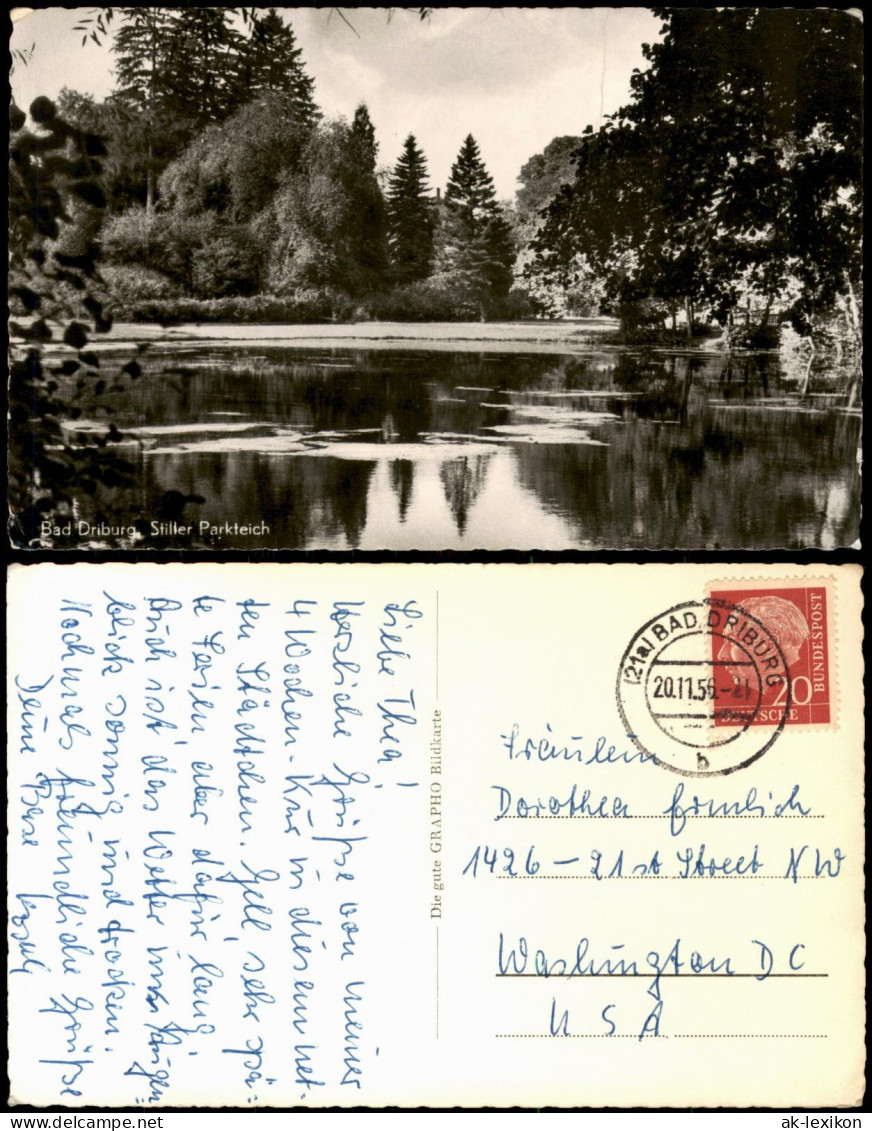 Bad Driburg, Stiller Parkteich
Liebe Thea!
Herzliche Grüße von meiner
4 Wochen-Kur in diesem net-
ten Städtchen. Gell, sehr spä=
te Ferien, aber dafür lang!
Auch ist das Wetter im Augen=
blick sonnig und trocken.
Nochmals freundliche Grüße
Deine Base
Die gute GRAPHO Bildkarte
(21a) BAD DRIBURG
20.11.56.-21
b
20
DEUTSCHE
BUNDESPOST
Fräulein
Dorothea Ermlich
1426 - 21st Street NW
Washington DC
USA
ak-lexikon